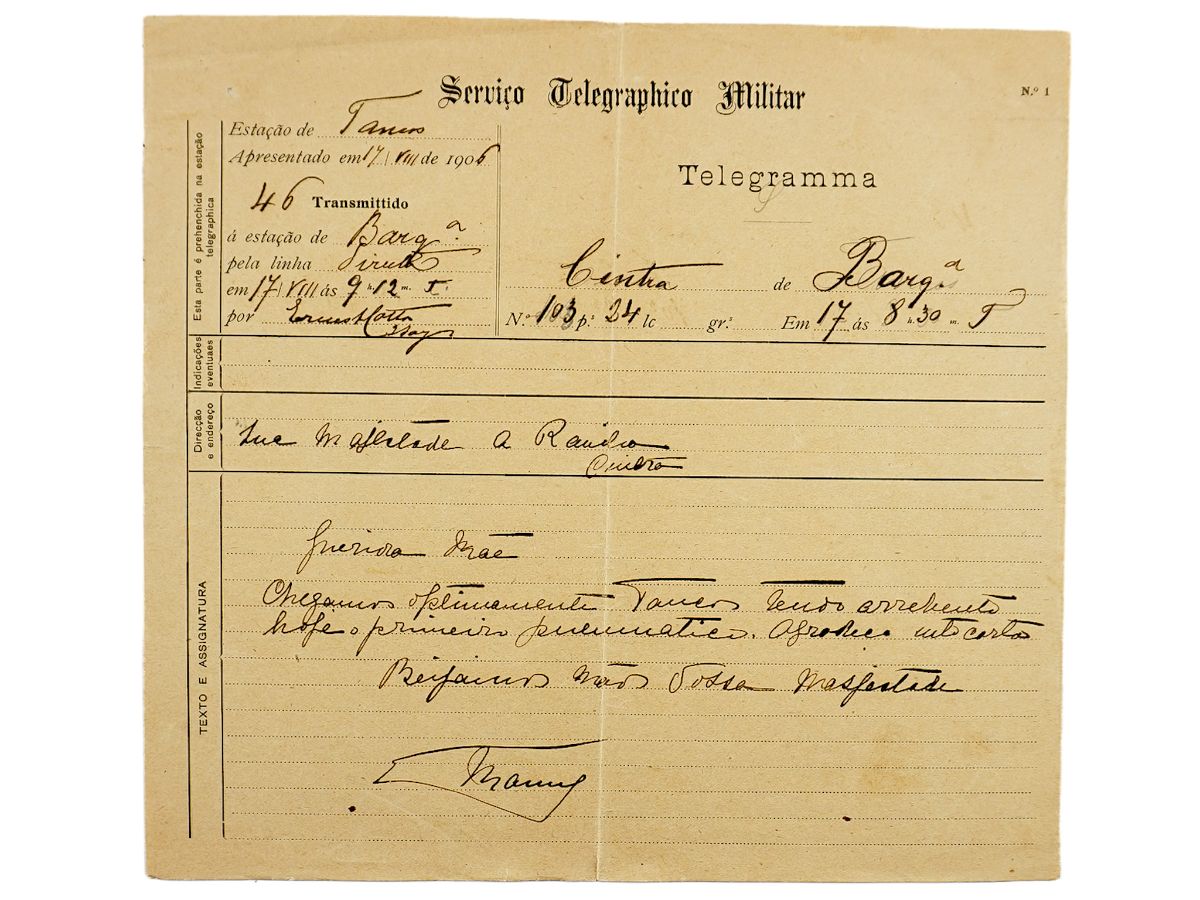 Serviço Telegraphico Militar
N.º 1
Esta parte é prehenchida na estação
telegraphica
Estação de Tancos
Apresentado em 17 / VIII de 1906
46 Transmittido
á estação de Barqª
pela linha Directa
em 17 / VIII ás 9 h. 12 m. T.
por
Telegramma
Cintra de Barqª
N.º 103 p.s 24 lc gr.s Em 17 ás 8 h. 30 m. T
Indicações
eventuaes
Direcção
e endereço
Sua Majestade A Rainha
Cintra
TEXTO E ASSIGNATURA
Querida Mãe
Chegamos optimamente Tancos tendo arrebento
hoje o primeiro pneumatico. Agradeço mto carta
Beijamos mãos Vossa Magestade
Manuel